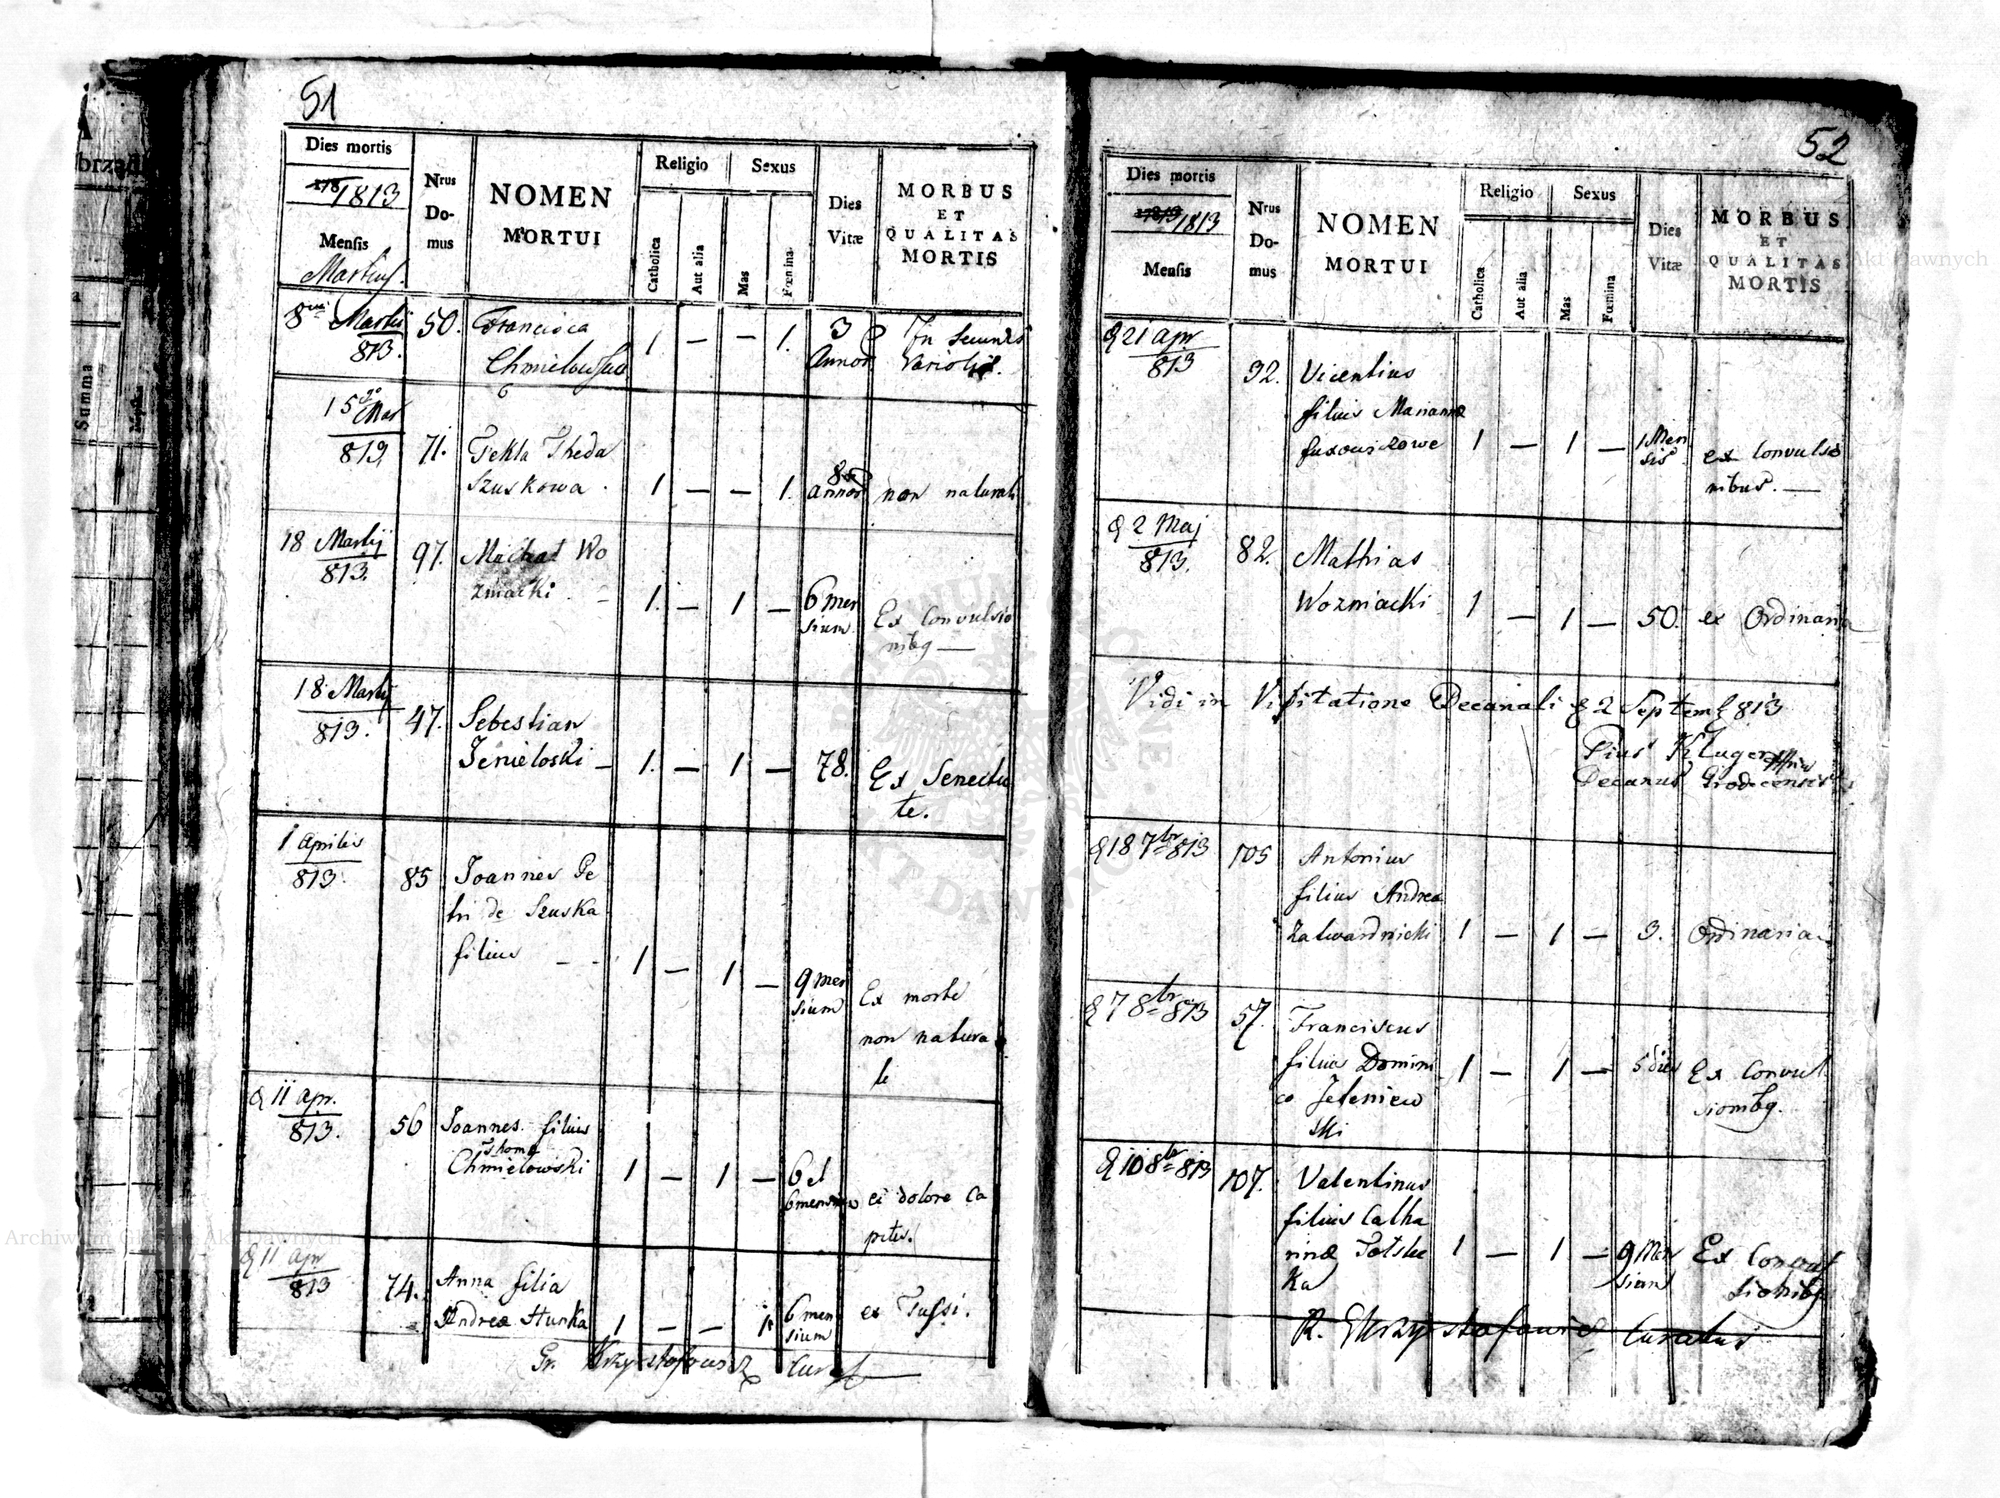 51
Dies mortis
1813
Mensis
Martius.
Nrus Do- mus
NOMEN
MORTUI
Religio
Catholica
Aut alia
Sexus
Mas
Fœmina
Dies Vitæ
MORBUS
ET
QUALITAS
MORTIS
8va Martij 813. 50. Francisca
Chmielowska 1 — — 1. 3 Annor In secundis
Variolis.
15 Mar
813 71. Tekla Theda
Szuskowa. 1 — — 1. 80 annor non naturali
18 Martij
813. 97. Michał Wo
zniacki. 1. — 1 — 6 men
sium. Ex Convulsio
nibq —
18 Martij
813. 47. Sebestian
Jenieloski — 1. — 1 — 78. Ex Senectu
te.
1 Aprilis
813. 85 Joannes Pe
tri de Szuska
filius — 1 — 1 — 9 men
sium Ex morte
non natura
le
d 11 apr.
813. 56 Joannes filius
Thoma
Chmielowski 1 — 1 — 6 et
6 mensium ex dolore Ca
pitis.
d 11 apr
813 74. Anna filia
Andreæ Hurka 1 — — 1 6 men
sium ex Tussi.
Gr. Krzysztofowicz Curat
52
Dies mortis
1813
Mensis
Nrus Do- mus
NOMEN
MORTUI
Religio
Catholica
Aut alia
Sexus
Mas
Fœmina
Dies Vitæ
MORBUS
ET
QUALITAS
MORTIS
d 21 apr
813 92. Vicentius
filius Marianæ
1 — 1 — 1 Men
sis ex Convulsio
nibus. —
d 2 Maj
813. 82. Mathias
Wozniacki 1 — 1 — 50. ex Ordinaria
Vidi in Visitatione Decanali d 2 Septemb 813
Pius Kluger
Decanus Grodecensis
d 18 7br 813 105 Antonius
filius Andreæ
Zatwardnicki 1 — 1 — 3. Ordinaria
d 7 8br 813 57. Franciscus
filius Domini
co Jeleniew
ski 1 — 1 — 5 dies Ex Convul
sionibq.
d 10 8br 813 107. Valentinus
filius Catha
rinæ Totska
ka 1 — 1 — 9 Men
sium Ex Convul
sionibq
R. G Krzysztofowicz Curatus
Summa
Archiwum Główne Akt Dawnych
ARCHIWUM GŁÓWNE AKT DAWNYCH
Akt Dawnych